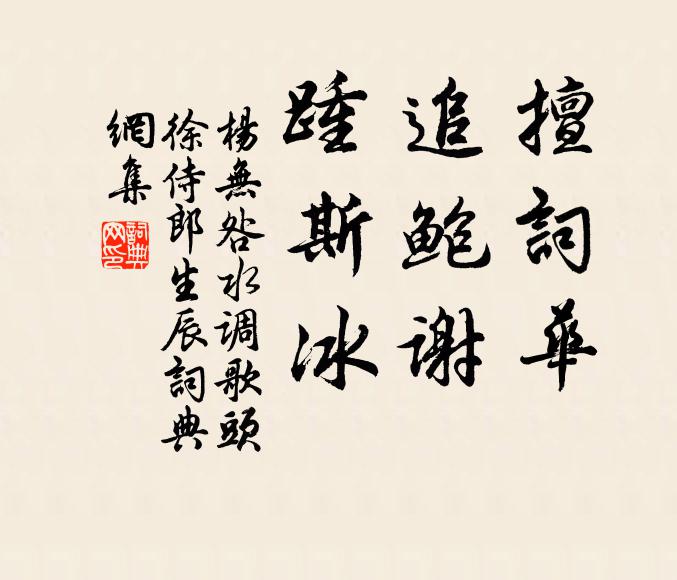 擅詞華
追鮑謝
踵斯冰
楊無咎水调歌頭
徐侍郎生辰詞典
網集
詞典网印